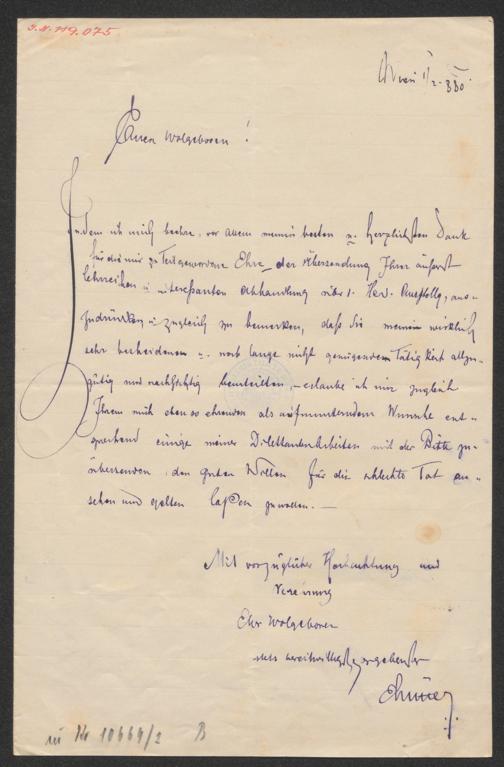 J.N. 119.075
Wien 1/2 880
Euer Wolgeboren!
Indem ich mich beehre, vor allem meinen besten u. herzlichsten Dank
für die mir zu Teil gewordene Ehre der Übersendung Ihrer äußerst
lehrreichen u. interessanten Abhandlung über d. her. Ausstellg, aus-
zudrücken u. zugleich zu bemerken, daß Sie meine wirklich
sehr bescheidenen u. noch lange nicht genügenden Tätigkeit allzu-
gütig und nachsichtig beurteilten, – erlaube ich mir zugleich
Ihrem mich ebenso ehrenden als aufmunterndem Wunsche ent-
sprechend einige meiner Dilettantenarbeiten mit der Bitte zu
übersenden, den guten Willen für die schlechte Tat an-
sehen und gelten laßen zu wollen. –
Mit vorzüglicher Hochachtung und
Verehrung
Euer Wolgeboren
stets bereitwilligst ergebenster
zu Nr 10669/2 B